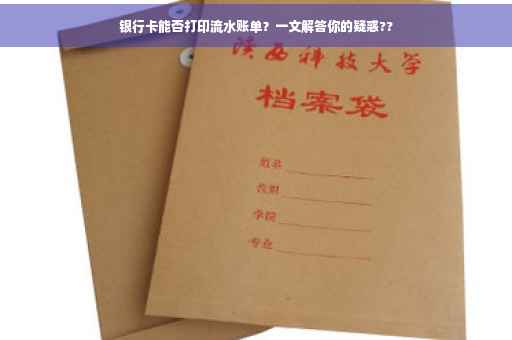 银行卡能否打印流水账单？一文解答你的疑惑??
陕西科技大学
档案袋
学院
专业